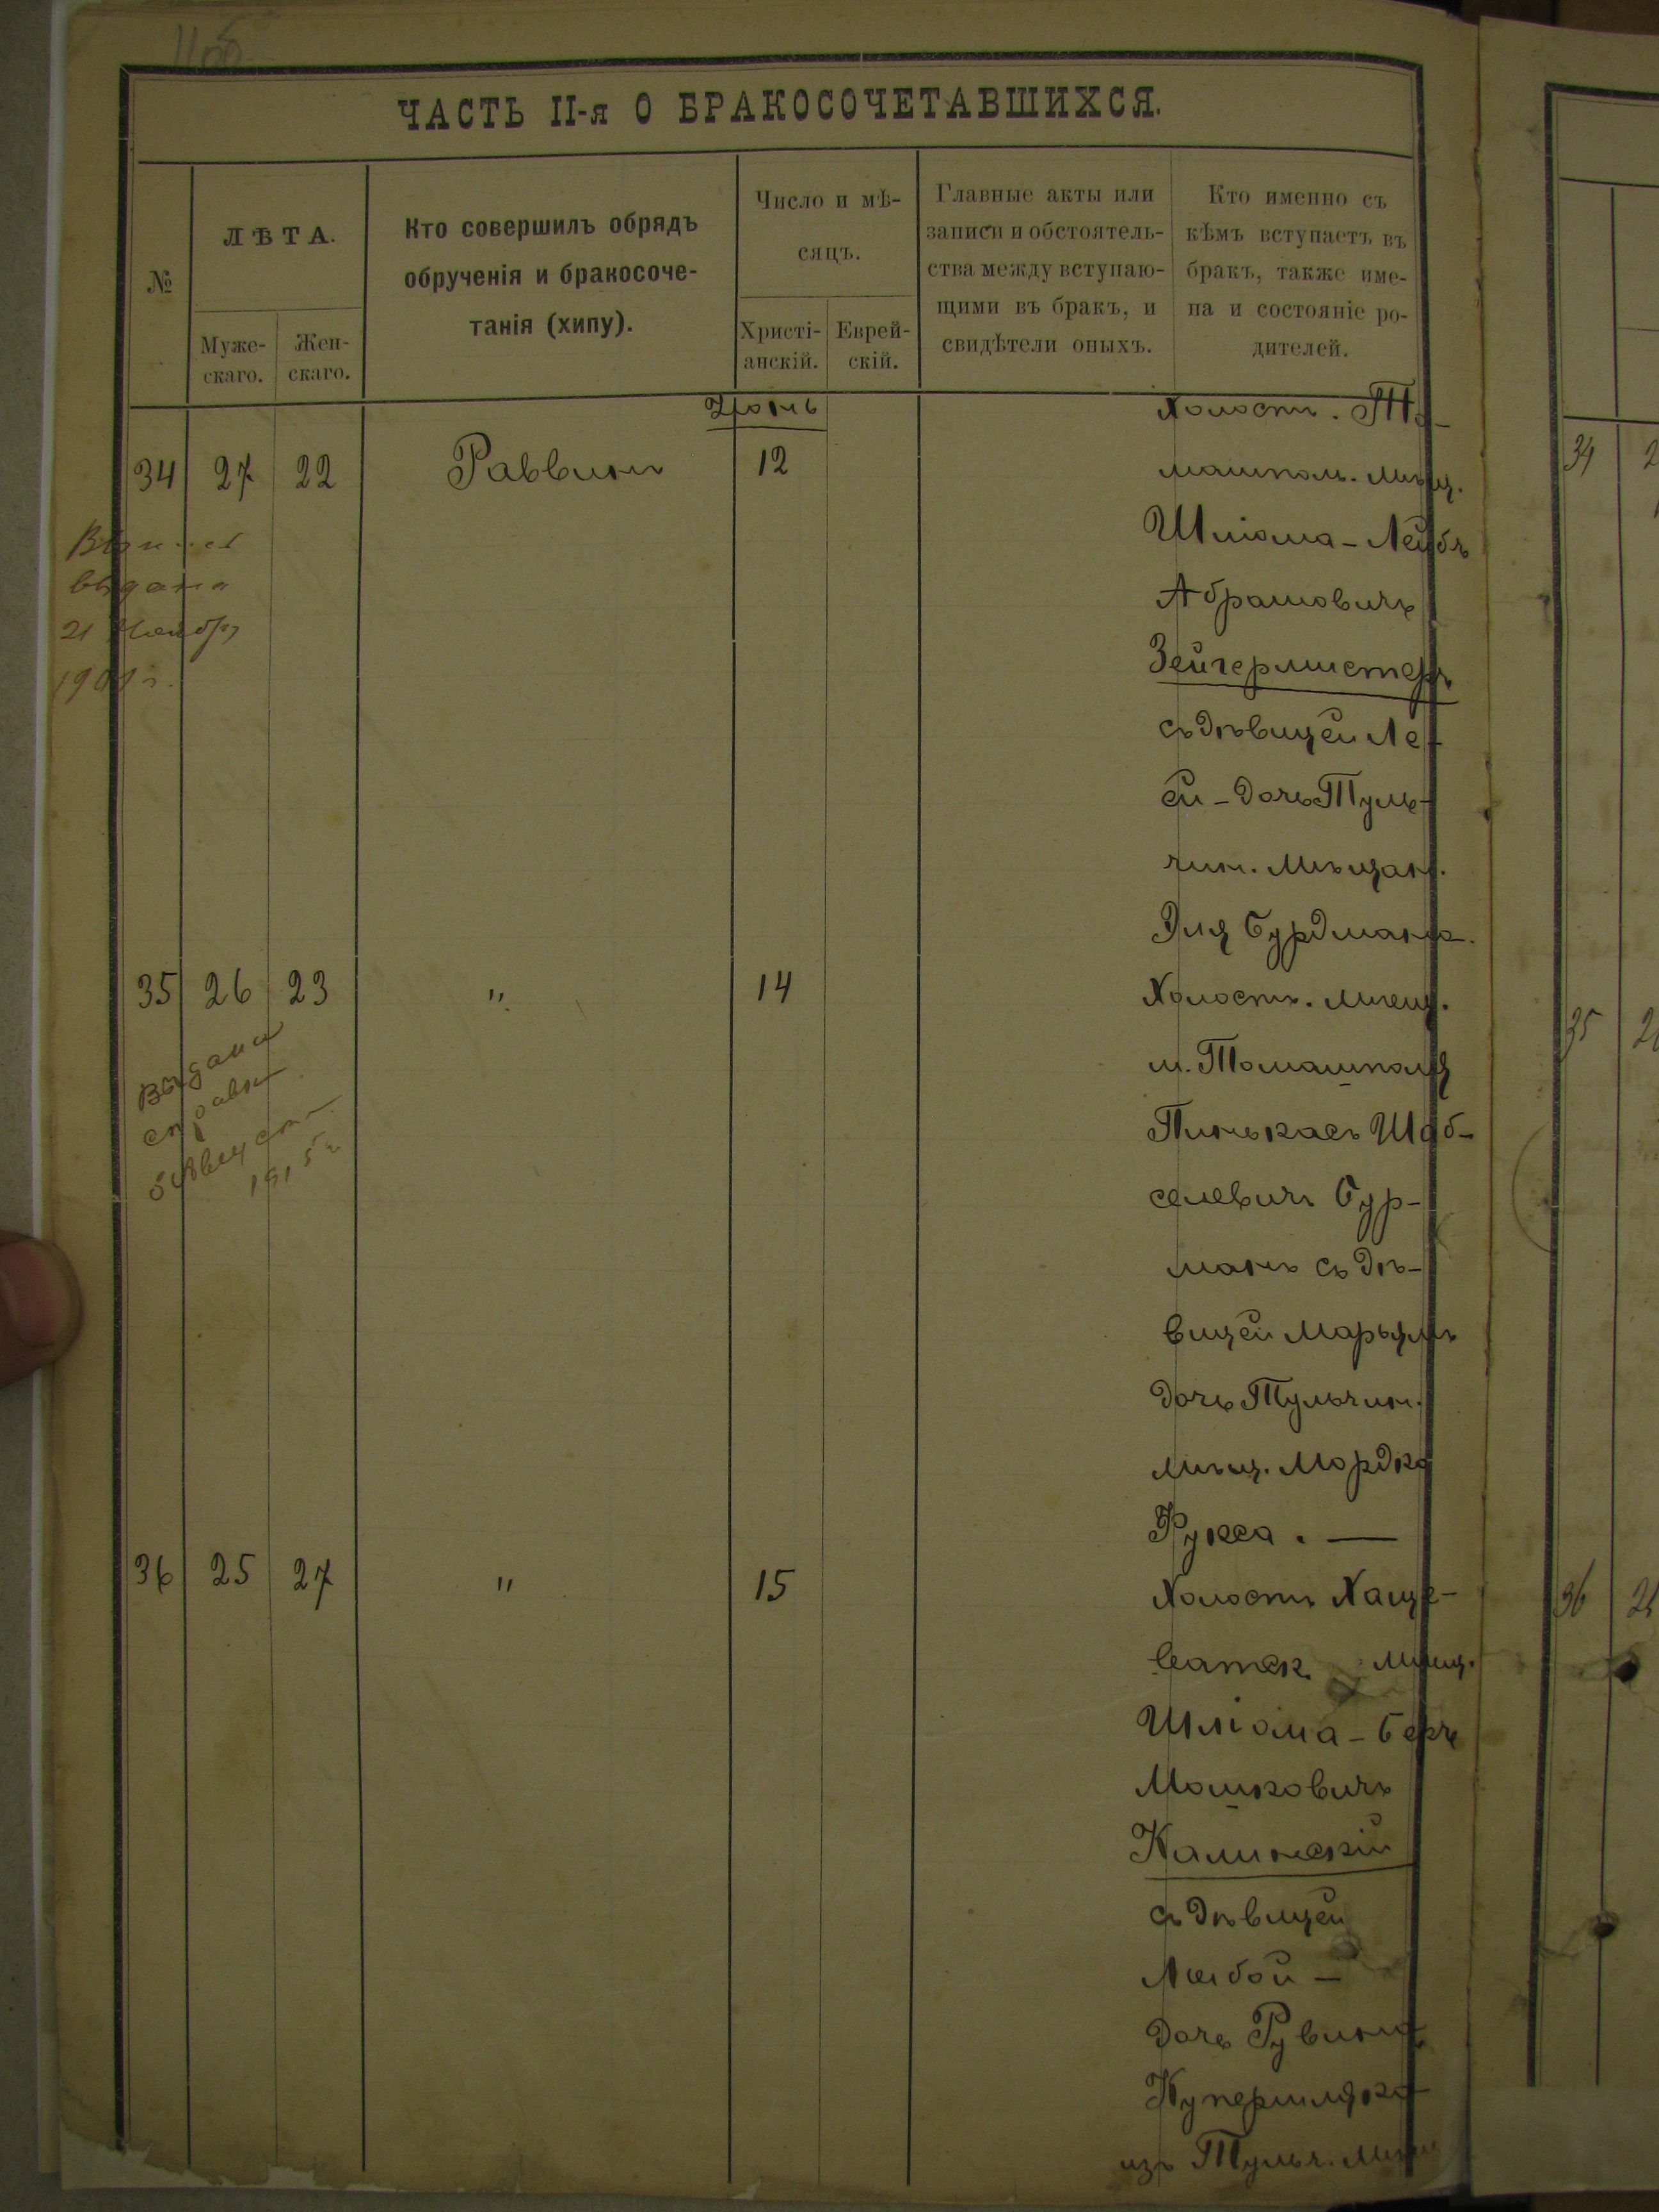 11об
ЧАСТЬ II-я О БРАКОСОЧЕТАВШИХСЯ.
№
ЛѢТА.
Муже-
скаго.
Жен-
скаго.
Кто совершилъ обрядъ
обрученія и бракосоче-
танія (хипу).
Число и мѣ-
сяцъ.
Христі-
анскій.
Еврей-
скій.
Главные акты или
записи и обстоятель-
ства между вступаю-
щими въ бракъ, и
свидѣтели оныхъ.
Кто именно съ
кѣмъ вступаетъ въ
бракъ, также име-
на и состояніе ро-
дителей.
34 27 22 Раввинъ 12
Холост. То-
машпол. мѣщ.
Шліома-Лейбъ
Абрамовичъ
Зейгермистеръ
съ дѣвицей Ле-
ей-дочь Туль-
чин. Мѣщан.
Эля Бурдмана.
выдана
21
35 26 23 " 14
Холостъ. мѣщ.
м. Томашполя
Пинькасъ Шаб-
селевичъ Бур-
манъ съ дѣ-
вицей Марьямъ
дочь Тульчин.
мѣщ. Мордко
Рукса. —
Выдана
5 Август
1915 г
36 25 27 " 15
Холостъ Хаще-
ватск мѣщ.
Шліома-Беръ
Мошковичъ
Калинскій
съ дѣвицей
Лейбой -
дочь Рувина
Купершляка
изъ Тульч. мѣщ
34 2
35 2
36 2